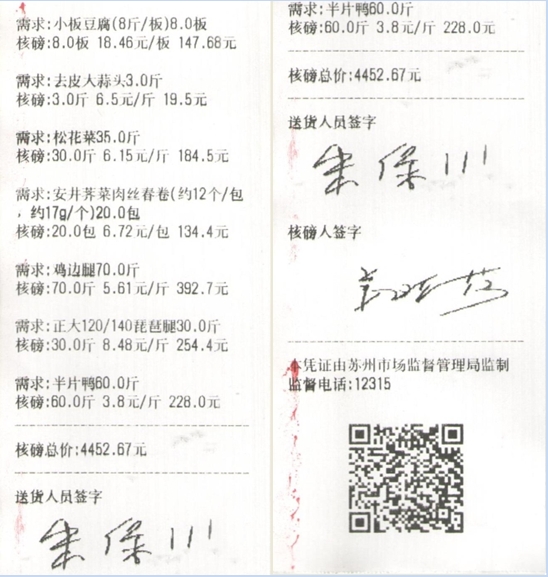 需求:小板豆腐(8斤/板)8.0板
核磅:8.0板 18.46元/板 147.68元
需求:去皮大蒜头3.0斤
核磅:3.0斤 6.5元/斤 19.5元
需求:松花菜35.0斤
核磅:30.0斤 6.15元/斤 184.5元
需求:安井荠菜肉丝春卷(约12个/包
，约17g/个)20.0包
核磅:20.0包 6.72元/包 134.4元
需求:鸡边腿70.0斤
核磅:70.0斤 5.61元/斤 392.7元
需求:正大120/140琵琶腿30.0斤
核磅:30.0斤 8.48元/斤 254.4元
需求:半片鸭60.0斤
核磅:60.0斤 3.8元/斤 228.0元
核磅总价:4452.67元
送货人员签字
朱保川
需求:半片鸭60.0斤
核磅:60.0斤 3.8元/斤 228.0元
核磅总价:4452.67元
送货人员签字
朱保川
核磅人签字
本凭证由苏州市场监督管理局监制
监督电话:12315